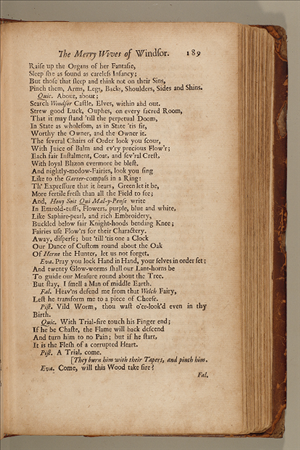 The Merry Wives of Windsor. 189
Raise up the Organs of her Fantasie,
Sleep she as sound as careless Infancy;
But those that sleep and think not on their Sins,
Pinch them, Arms, Legs, Backs, Shoulders, Sides and Shins.
Quic. About, about;
Search Windsor Castle, Elves, within and out.
Strew good Luck, Ouphes, on every sacred Room,
That it may stand 'till the perpetual Doom,
In State as wholesom, as in State 'tis fit,
Worthy the Owner, and the Owner it.
The several Chairs of Order look you scour,
With Juice of Balm and ev'ry precious Flow'r;
Each fair Instalment, Coat, and sev'ral Crest,
With loyal Blazon evermore be blest.
And nightly-medow-Fairies, look you sing
Like to the Garter-compass in a Ring:
Th' Expressure that it bears, Green let it be,
More fertile fresh than all the Field to see;
And, Hony Soit Qui Mal-y-Pense write
In Emrold-tuffs, Flowers, purple, blue and white,
Like Saphire-pearl, and rich Embroidery,
Buckled below fair Knight-hoods bending Knee;
Fairies use Flow'rs for their Charactery.
Away, disperse; but 'till 'tis one a Clock
Our Dance of Custom round about the Oak
Of Herne the Hunter, let us not forget.
Eva. Pray you Lock Hand in Hand, your selves in order set;
And twenty Glow-worms shall our Lanthorns be
To guide our Measure round about the Tree.
But stay, I smell a Man of middle Earth.
Fal. Heav'ns defend me from that Welch Fairy,
Lest he transform me to a piece of Cheese.
Pist. Vild Worm, thou wast o'er-look'd even in thy
Birth.
Quic. With Trial-fire touch his Finger end;
If he be Chaste, the Flame will back descend
And turn him to no Pain; but if he start,
It is the Flesh of a corrupted Heart.
Pist. A Trial, come.
[They burn him with their Tapers, and pinch him.
Eva. Come, will this Wood take fire?
Fal.